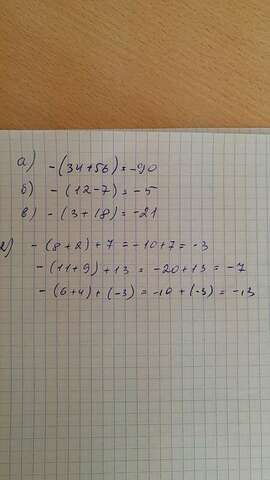 а) -(34+56)=-90
б) -(12-7)=-5
в) -(3+18)=-21
г) -(8+2)+7=-10+7=-3
-(11+9)+13=-20+13=-7
-(6+4)+(-3)=-10+(-3)=-13